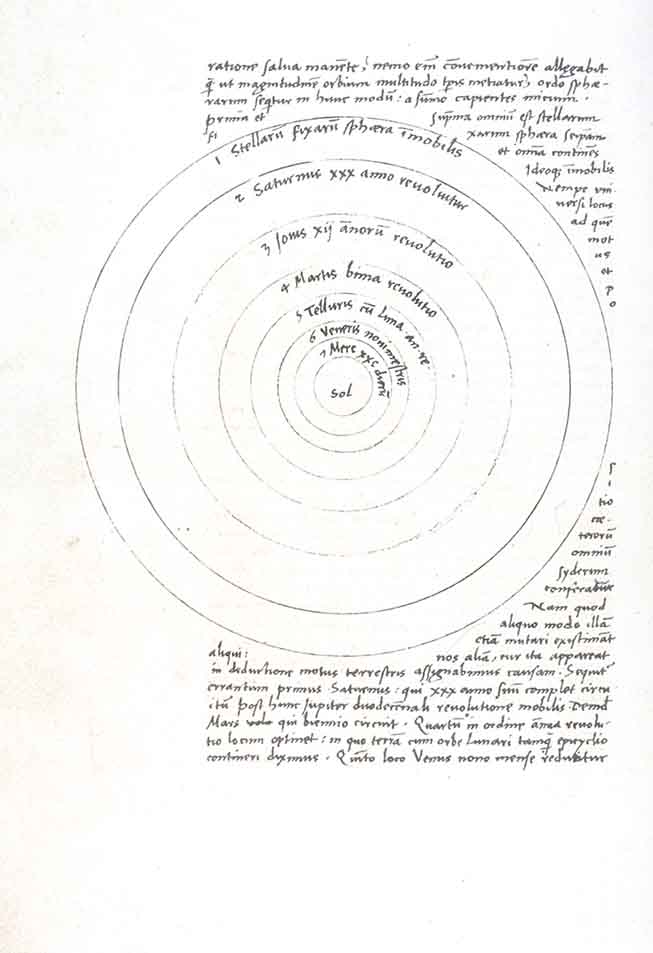 ratione salva manēte, nemo em̄ cōvenientiorē allegabit
q̄ ut magnitudinē orbium multitudo tp̄is metiatur, ordo sphæ-
rarum seq̄tur in hunc modū: a sūmo capientes initium.
prima et sup̄ma omniū est stellarum
fi xarum sphæra seip̄am
et om̄ia continēs
Ideoq; īmobilis
Nempe vni
versi locus
ad quē
mot
us
et
p
o
1 Stellarū fixarū sphæra īmobilis
2 Saturnus xxx anno revolvitur
3 Jovis xij ān̄orū revolutio
4 Martis bima revolutio
5 Telluris cū Luna an. re
6 Veneris nonimestris
7 Merc xxc dierū
Sol
s
i
tio
cæ-
terorū
omniū
syderum
conferatur
Nam quod
aliquo modo illā
etiā mutari existimāt
aliqui: nos aliā, cur ita appareat
in deductione motus terrestris assignabimus causam. Sequit̄
errantium primus Saturnus: qui xxx anno suū complet circu
itū Post hunc Jupiter duodecēnali revolutione mobilis Deind̄
Mars qui biennio circuit. Quartū in ordine ān̄ua revolu-
tio locum optinet: in quo terrā cum orbe Lunari tanq̄ epicyclio
contineri diximus. Quīto loco Venus nono mense reducitur